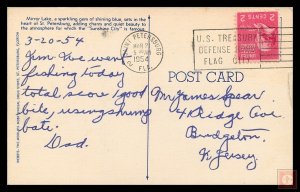 Mirror Lake, a sparkling gem of shining blue, sets in the
heart of St. Petersburg, adding charm and quiet beauty to
the atmosphere for which the "Sunshine City" is famous.
3-20-54
Jim - We went
fishing today
total score 1 good
bite, using shrimp
bate.
Dad.
ST. PETERSBURG
MAR 2
PM
1954
FLA.
U.S. TREASURY
DEFENSE BOND
FLAG CITY
2 CENTS 2
POST CARD
Mr James Spear
4 Ridge Ave
Bridgeton
N Jersey